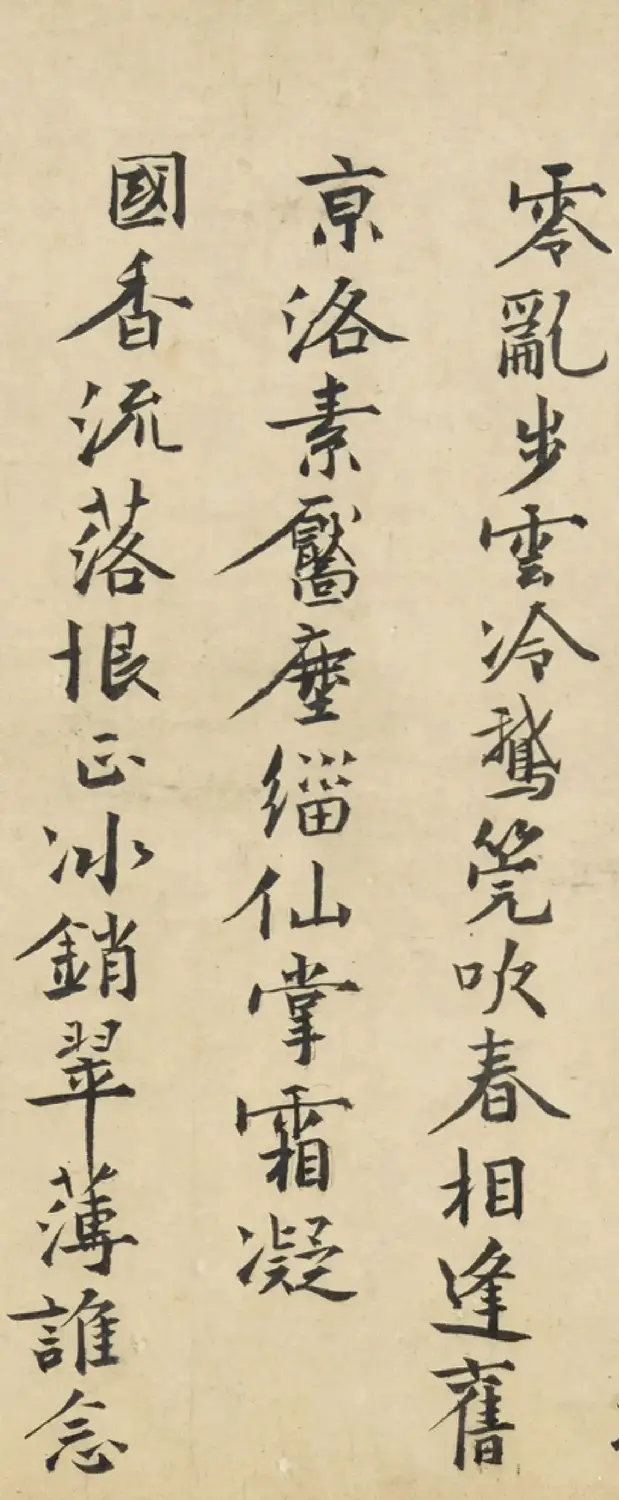 零亂步雲冷鵝筦吹春相逢舊
京洛素靨塵緇仙掌霜凝
國香流落恨正冰銷翠薄誰念